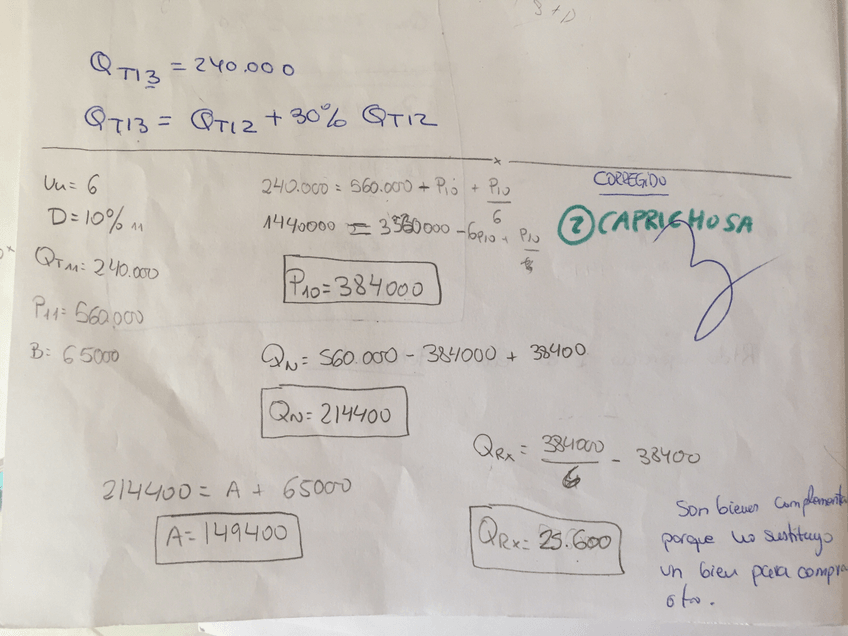 QT13 = 240.000
QT13 = QT12 + 30% QT12
Vu = 6
D = 10% 11
QT11 = 240.000
P11 = 560.000
B = 65000
240.000 = 560.000 + P10 + P10/6
1440000 = 3360000 - 6P10 + P10
P10 = 384000
CORREGIDO
2 CAPRICHOSA
QN = 560.000 - 384000 + 38400
QN = 214400
214400 = A + 65000
A = 149400
QRx = 384000/6 - 38400
QRx = 25.600
Son bienes complementa
porque no sustituyo
un bien para compra
otro.